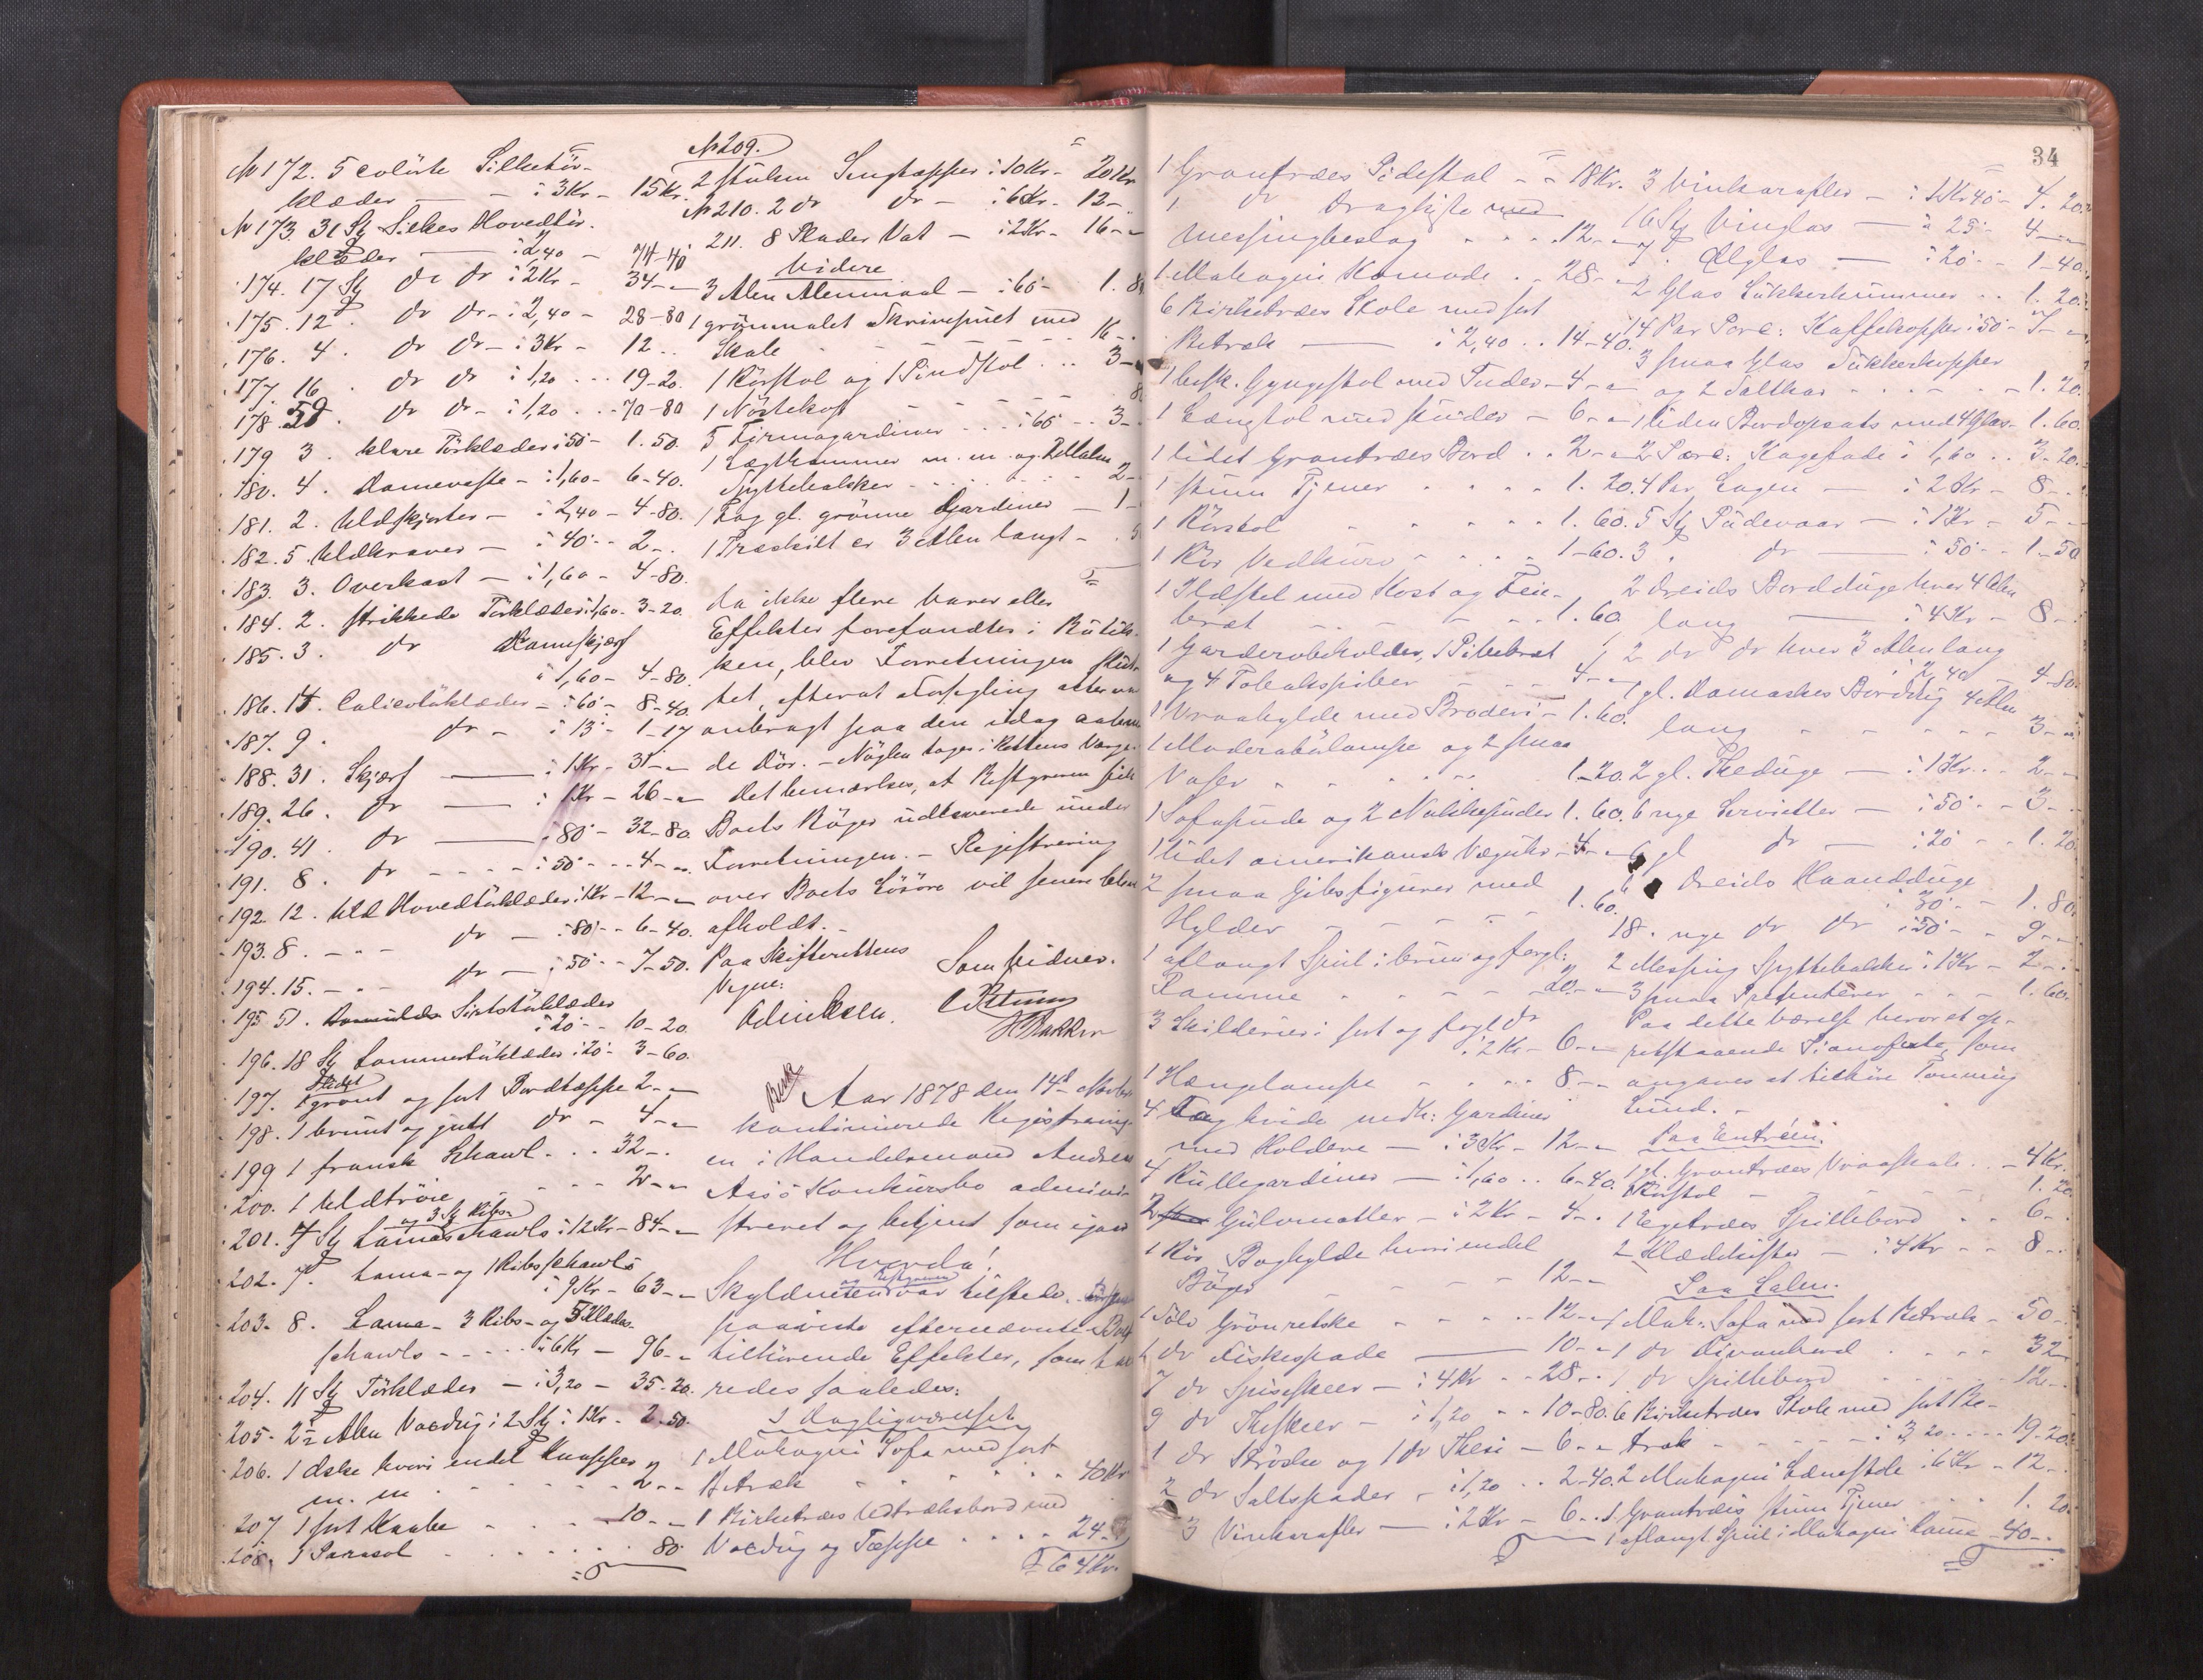 No 172. 5 colörte Silketör-
klæder - à 3 Kr - 15 Kr.
No 173. 31 Stk Silkes Hovedtör-
klæder - à 2,40 - 74-40
174. 17 Stk dr dr à 2 Kr - 34--
175. 12 . dr dr - à 2,40 - 28-80
176. 4 . dr dr - à 3 Kr - 12 ..
177. 16 . dr dr à 1,20 ... 19-20.
178. 59 . dr dr - à 1,20 ... 70-80
179 3 . klare Törklæder à 50 - 1.50.
180. 4 . Dameveste - à 1,60 - 6-40.
181. 2 . Uldskjorter - à 2,40 - 4-80.
182. 5 . Uldkraver - à 40 - 2 - .
183. 3. Overkast - à 1,60 - 4-80.
184. 2. strikkede Törklæder à 1,60. 3-20.
185. 3. dr Dameskjerf
à 1,60 - 4-80.
186. 14. Calicotörklæder - à 60 - 8-40.
187. 9 . dr - à 13 - 1-17
188. 31. Skjerf - à 1 Kr - 31--
189. 26. dr - à 1 Kr - 26--
190. 41. dr - à 80 - 32-80.
191. 8. dr - à 50 - 4--
192. 12. Uld Hovedtörklæder à 1 Kr - 12--
193. 8. - - - dr - à 80 - 6-40.
194. 15. - - - dr - à 50 - 7-50.
195 51. Sirtstörklæder
à 20 - 10-20
196. 18 Stk Sommertörklæder à 20 - 3-60.
197. 1 grönt og sort Bordtæppe 2--
198. 1 brunt og gult dr - 4--
199 1 fransk Schawl ... 32-.
200. 1 Uldtröie - - - 2--
og 3 Stk Ribs-
201. 7 Stk Lamaschawls à 12 Kr - 84--
202. 7. Lama- og 1 Ribsschawls
à 9 Kr - 63--
203. 8. Lama- 3 Ribs- og 5 Klædes-
schawls - - - à 6 Kr - 96--
204. 11 Stk Törklæder - à 3,20 - 35-20.
205. 2½ Alen Voxdug i 2 Stk à 1 Kr - 2-50.
206. 1 Æske hvori endel Knapper
m. m. - - - 2--
207 1 sort Kaabe - - - 10--
208. 1 Parasol - - - 80

No 209.
2 stukne Sengtæpper à 10 Kr - 20 Kr
No 210. 2 dr dr - à 6 Kr - 12-.
211. 8 Plader Vat - à 2 Kr - 16--
Videre
3 Alen Alenmaal - à 60 - 1.80
1 grönmalet Skrivepult med
Skab - - - 16-.
1 Rörstol og 1 Pindstol ... 3--
1 Nöstekop - - - 80
5 Firmagardiner ... à 60 .. 3-.
1 Lægthammer m. m. og 2 Malm
Spyttebakker - - - 2-
1 Fag gl. grönne Gardiner - 1-
1 Træskilt ca 3 Alen langt - . 50
da ikke flere Varer eller
Effekter forefandtes i Butik-
ken, blev Forretningen slut-
tet, efterat Forsegling atter var
anbragt paa den idag aabne-
de Dör. - Nöglen toges i Rettens Værge.
Det bemærkes, at Bestyreren fik
Boets Böger udleverede under
Forretningen. - Registrering
over Boets Lösöre vil senere blive
afholdt. -
Paa Skifterettens
Vegne:
Som Vidner.

Aar 1878 den 14d Novbr
kontinuerede Registrering-
en i Handelsmand Andreas
Aasö Konkursbo admini-
streret og betjent som igaar
Hvorda!
og Bestyreren
Skyldneren var tilstede.
paaviste efternævnte Boet
tilhörende Effekter, som
redes saaledes:
I Dagligværelset
1 Mahogni Sofa med sort
Betræk - - - 40 Kr
1 Birketræes Udtræksbord med
Voxdug og Tæppe .... 24-.
64 Kr.

34
1 Grantræes Pidestal - - 18 Kr.
1 dr Dragkiste med
Messingbeslag ... 12--
1 Mahogni Komode .. 28--
6 Birketræes Stole med sort
Betræk - à 2,40 .. 14-40.
1 besk. Gyngestol med Puder - 4--
1 Længstol med Puder - 6--
1 lidet Grantræes Bord .. 2--
1 stum Tjener .... 1.20.
1 Rörstol - - - 1.60.
1 Rör Vedkurv - - - 1-60.
1 Ildstel med Kost og Feie-
bræt - - - 1.60
1 Garderobeholder, 1 Pibebræt
og 4 Tobakspiber - - 4--
1 Vraahylde med Broderi - 1.60.
1 Moderatörlampe og 2 smaa
Vaser - - - 1-20.
1 Sofapude og 2 Nakkepuder 1.60.
1 lidet amerikansk Væguhr - 4--
2 smaa Gibsfigurer med
Hylder - - - 1.60.
1 aflangt Speil i brun og forgl:
Ramme - - - 20--
3 Skilderier i sort og forgl dr
à 2 Kr - 6--
1 Hængelampe - - - 8--
4 Fag hvide nedh: Gardiner
med Holdere - à 3 Kr - 12--
4 Rullegardiner - à 1,60 .. 6-40.
2 Gulvmatter - à 2 Kr - 4-.
1 Rör Boghylde hvori endel
Böger - - - 12--
1 Sölv Grönretske - - - 12--
1 dr Fiskespade - 10--
7 dr Spiseskeer - à 4 Kr - 28-.
9 dr Theskeer - à 1,20 - - 10-80.
1 dr Ströske og 1 dr Thesi - 6--
2 dr Saltspader - à 1,20 .. 2-40.
3 Vinkarafler - à 2 Kr - 6-.

3 Vinkarafler - à 1 Kr 40 - 4.20.
16 Stk Vinglas - à 25 - 4--
7 . Ölglas - à 20 - 1-40.
2 Glas Sukkerkummer .. 1.20.
14 Par Porc: Kaffekopper à 50 - 7--
3 smaa Glas Sukkerkopper
og 2 Saltkar - - - 1.20.
1 liden Bordopsats med 4 Glas - 1.60.
2 Porc: Kagefade à 1,60 .. 3-20.
4 Par Lagen - à 2 Kr - 8-.
5 Stk Pudevaar - à 1 Kr - 5--
3 . dr - à 50 - 1-50
2 Dreils Bordduge hver 4 Alen
lang - à 4 Kr - 8-.
2 dr dr hver 3 Alen lang
à 2,40 - 4-80.
1 gl. Damaskes Borddug 4 Alen
lang - - - 3--
2 gl. Theduge - à 1 Kr .. 2--
6 nye Servietter - à 50 - 3-.
6 gl dr - à 20 - 1.20
6 Dreils Haandduge
à 30 - 1.80.
18. nye dr dr à 50 - 9--
2 Messing Spyttebakker à 1 Kr - 2-.
3 smaa Presenterer - - 1.60.
Paa dette Værelse beror et op-
retstaaende Pianoforte, som
angaves at tilhöre Tonning
Lund. -
Paa Entréen.
1 gl. Grantræes Vraaskab .. - 4 Kr.
1 Rörstol - - - 1.20.
1 Egetræes Spillebord .. 6-.
2 Klædekister - à 4 Kr - 8-.
Paa Salen.
1 Mah: Sofa med sort Betræk - 50-.
1 dr Divanbord .... 32
1 dr Spillebord - - - 12-.
6 Birketræes Stole med sort Be-
træk - - - à 3,20 ... 19-20.
2 Mahogni Lænestole à 6 Kr - 12-.
1 Grantræes stum Tjener .. 1.20.
1 aflangt Speil i Mahogni Ramme - 40-.